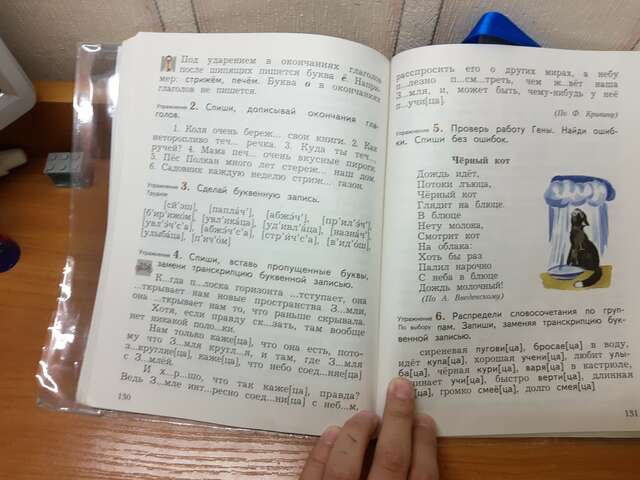 Под ударением в окончаниях глаголов
после шипящих пишется буква ё. Напри-
мер: стрижём, печём. Буква о в окончаниях
глаголов не пишется.
Упражнение 2. Спиши, дописывай окончания гла-
голов.
1. Коля очень береж... свои книги. 2. Как
неторопливо теч... речка. 3. Куда ты теч...
ручей? 4. Мама печ... очень вкусные пироги.
5. Пёс Полкан много лет стереж... наш дом.
6. Садовник каждую неделю стриж... газон.
Упражнение 3. Сделай буквенную запись.
Трудное
[папла́ч'], [абжэ́ч'],
[б'ир'ижо́м], [увл'ика́ца], [уд'ивл'а́ца], [назна́ч'],
[улыба́ца], [п'ич'о́м]
Упражнение 4. Спиши, вставь пропущенные буквы,
замени транскрипцию буквенной записью.
К...гда п...лоска горизонта ...тступает, она
...ткрывает нам новые пространства З...мли,
она ...ткрывает нам то, что раньше скрывала.
Хотя, если правду ск...зать, там вообще
нет никакой поло...ки.
Нам только каже[ца], что она есть, пото-
му что З...мля кругл...я, и там, где З...мля
з...кругляе[ца], каже[ца], что небо соед...няе[ца]
с З...млёй.
И х...р...шо, что так каже[ца], правда?
Ведь З...мле инт...ресно соед...ни[ца] с неб...м,
130
расспросить его о других мирах, а небу
п...лезно п...см...треть, чем ж...вёт наша
З...мля, и, может быть, чему-нибудь у неё
п...учи[ца].
(По Ф. Кривину)
Упражнение 5. Проверь работу Гены. Найди ошиб-
ки. Спиши без ошибок.
Чёрный кот
Дождь идёт,
Потоки льюца,
Чёрный кот
Глядит на блюце.
В блюце
Нету молока,
Смотрит кот
На облака:
Хоть бы раз
Палил нарочно
С неба в блюце
Дождь молочный!
(По А. Введенскому)
Упражнение 6. Распредели словосочетания по груп-
По выбору пам. Запиши, заменяя транскрипцию бук-
венной записью.
сиреневая пугови[ца], бросае[ца] в воду,
идёт купа[ца], хорошая учени[ца], любит улы-
ба[ца], чёрная кури[ца], варя[ца] в кастрюле,
учи[ца], быстро верти[ца], длинная
громко смеё[ца], долго смея[ца]
131